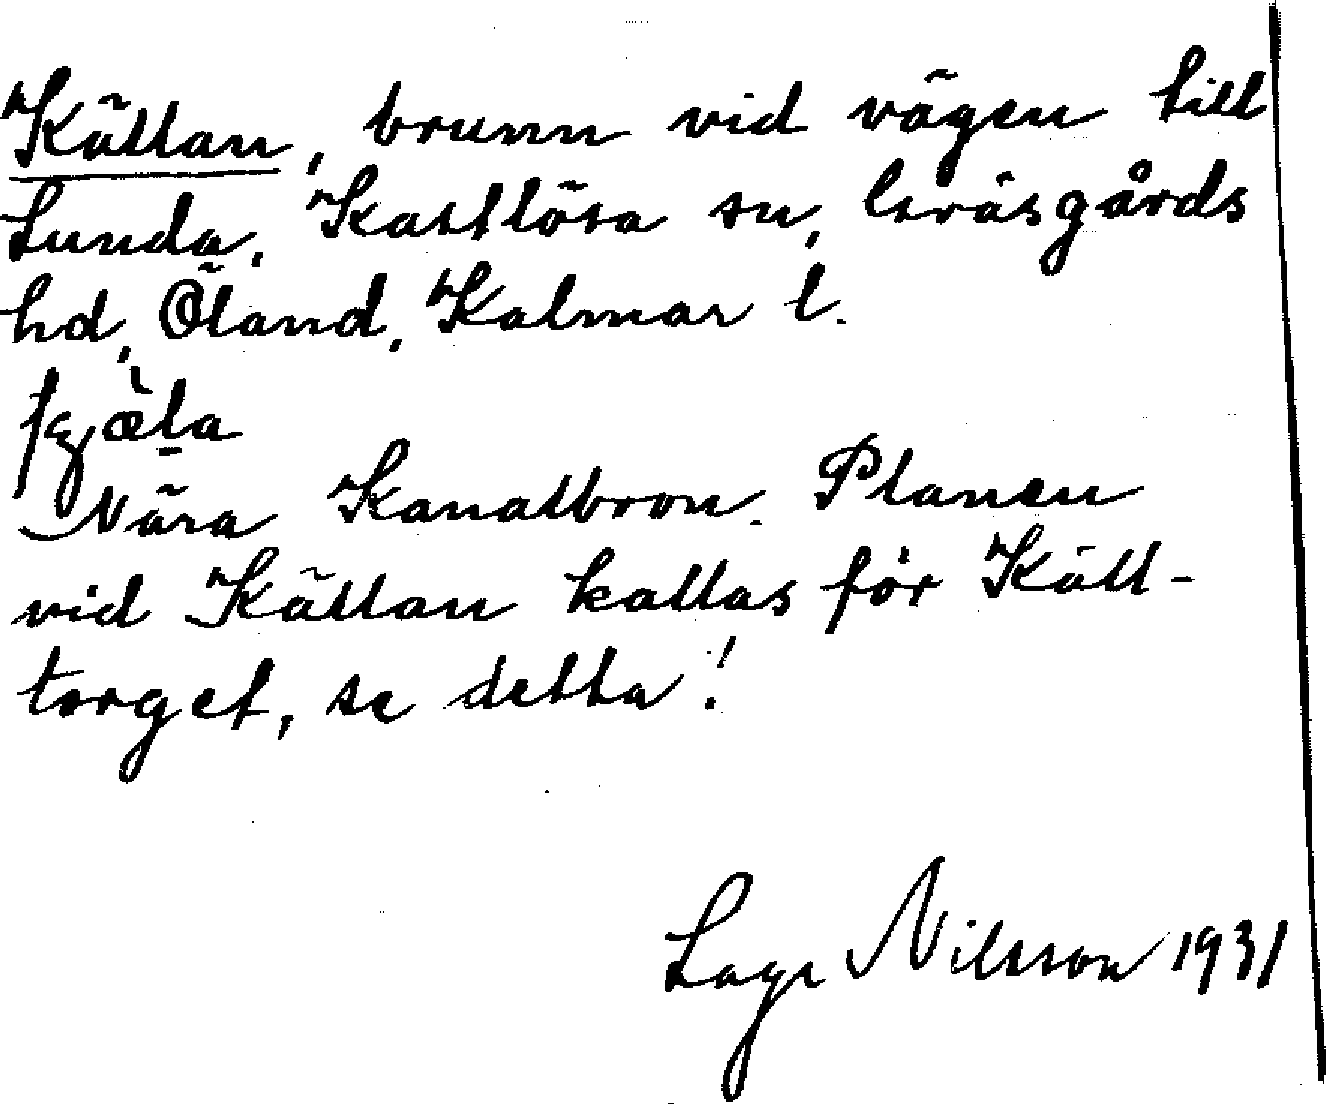 Källan, brunn vid vägen till
Lunda, Kastlösa sn, Gräsgårds
hd, Öland, Kalmar l.
Nära Kanalbron. Planen
vid Källan kallas för Käll-
torget, se detta!
Lage Nilsson 1931